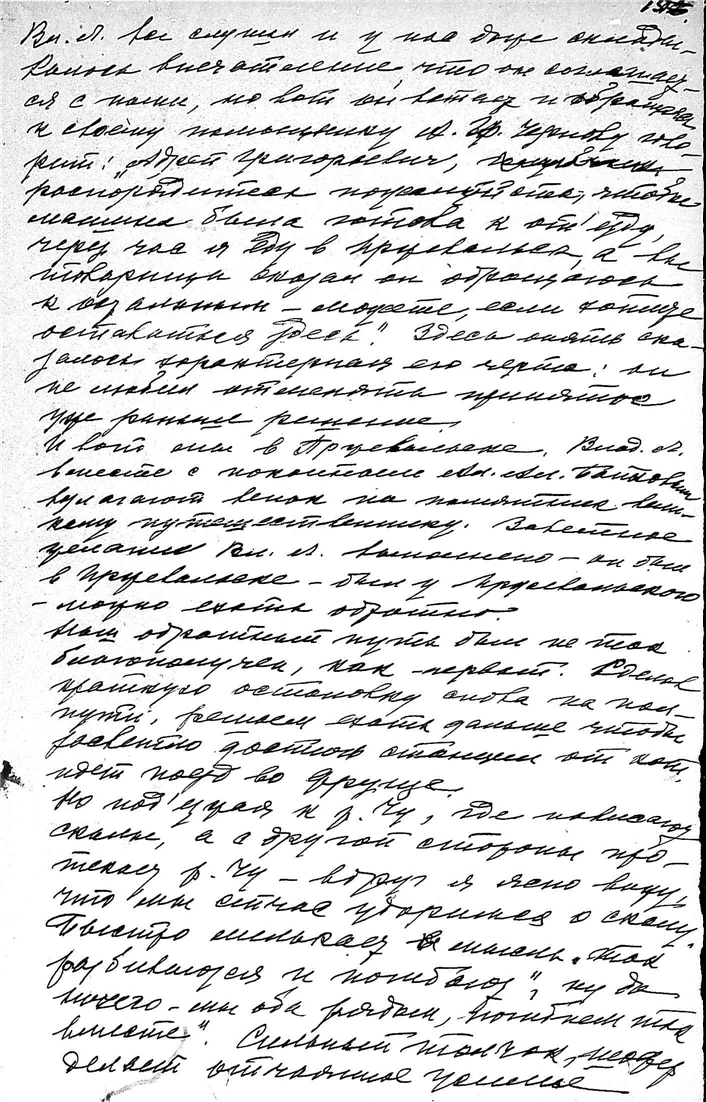 Вл. Л. все слушал и у нас даже складыва-
валось впечатление, что он соглашает-
ся с нами, но вот он встает и обращаясь
к своему помощнику А. Г. Чернову гово-
рит: "Андрей Григорьевич,
распорядитесь пожалуйста, чтобы
машина была готова к от'езду,
через час я еду в Пржевальск, а вы
товарищи сказал он обращаясь
к остальным – можете, если хотите
оставаться здесь". Здесь опять ска-
залось характерная его черта: он
не любил отменять принятое
уже раньше решение.
И вот мы в Пржевальске. Влад. Л.
вместе с покойным Ал. Ал.
возлагают венок на памятник вели-
кому путешественнику. Заветное
желание Вл. Л. выполнено – он был
в Пржевальске – был у Пржевальского
– можно ехать обратно.
Наш обратный путь был не так
благополучен, как первый. Сделав
краткую остановку снова на пол-
пути, решаем ехать дальше чтобы
засветло достичь станции от кот.
идет поезд во Фрунзе.
Но под'езжая к р. Чу, где нависают
скалы, а с другой стороны про-
текает р. Чу – вдруг я ясно вижу,
что мы сейчас ударимся о скалу
Быстро мелькает мысль "так
разбиваются и погибают", ну да
ничего – мы оба рядом, погибнем так
вместе". Сильный толчок, шофер
делает отчаянное усилие